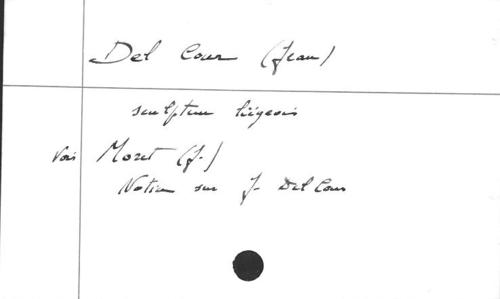 Del Cour (Jean)
sculpteur liégeois
Voir Moret (J.)
Notice sur J. Del Cour